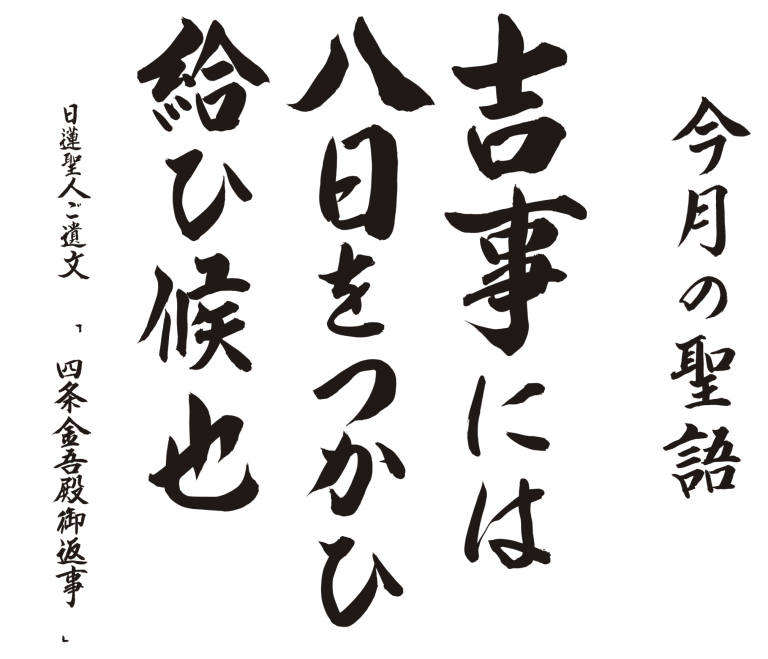 今月の聖語
吉事には
八日をつかひ
給ひ候也
日蓮聖人ご遺文 「四条金吾殿御返事」